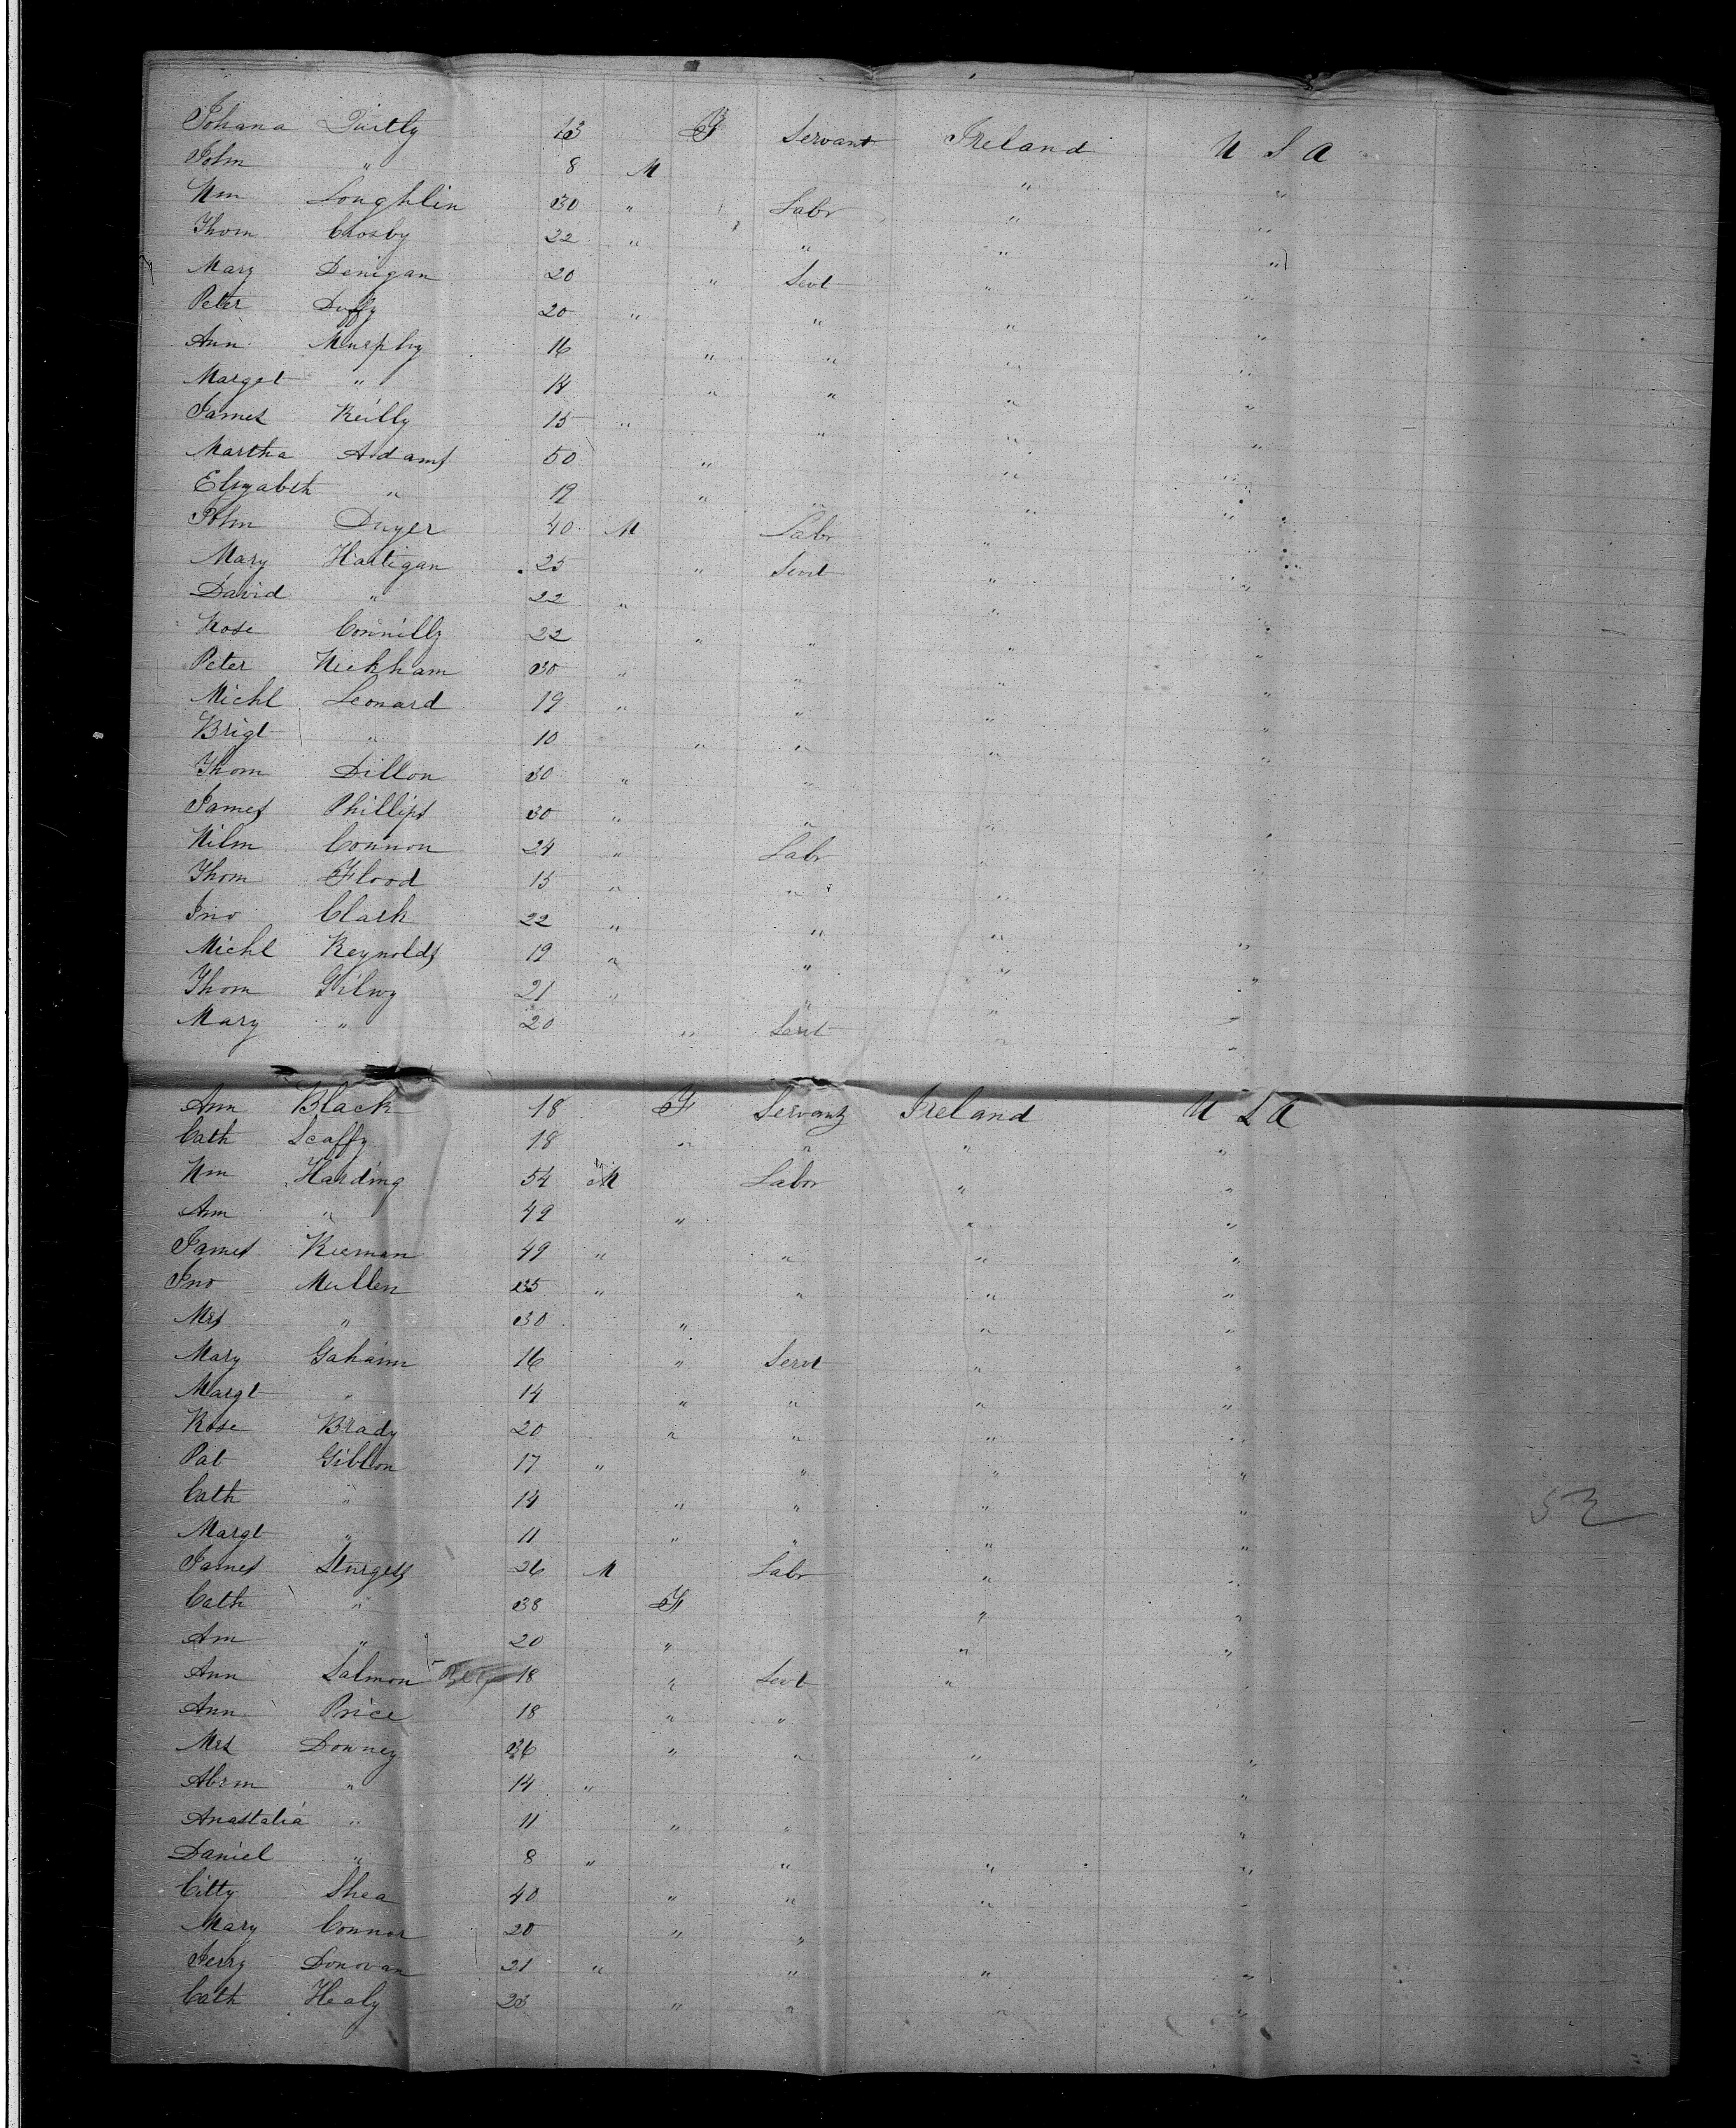 Johana Quitly 13 F Servant Ireland U S A
John " 8 M " "
Wm Loughlin 30 " Labr " "
Thom Crosby 22 " " " "
Mary Denigan 20 " Sevt " "
Peter Duffy 20 " " " "
Ann Murphy 16 " " " "
Marget " 14 " " " "
James Reilly 15 " " " "
Martha Adams 50 " " "
Elizabeth " 19 " " " "
John Dwyer 40 M Labr " "
Mary Hartigan 25 " Sevt " "
David " 22 " " "
Rose Connilly 22 " " " "
Peter Wickham 30 " " " "
Michl Leonard 19 " " " "
Brigt " 10 " " " "
Thom Dillon 30 " "
James Phillips 30 " " " "
Wilm Connon 24 " Labr " "
Thom Flood 15 " " "
Jno Clark 22 " " " "
Michl Reynolds 19 " " " "
Thom Gilwy 21 " " " "
Mary " 20 " Sevt " "
Ann Black 18 F Servant Ireland U S A
Cath Scaffy 18 " " " "
Wm Harding 54 M Labor " "
Ann " 49 " " "
James Kiernan 49 " " " "
Jno Mullen 35 " " " "
Mrs " 30 " " "
Mary Gahann 16 " Servt " "
Margt " 14 " " " "
Rose Brady 20 " " " "
Pat Gibbon 17 " " " "
Cath " 14 " " " "
Margt " 11 " " " "
James Sturgess 26 M Labr " "
Cath " 38 F " "
Ann " 20 " " "
Ann Salmon 18 " Sevt "
Ann Price 18 " "
Mrs Downey 36 " " " "
Abrm " 14 " "
Anastatia " 11 " " "
Daniel " 8 " " " "
Citty Shea 40 " " " "
Mary Connor 20 " "
Jerry Donovan 21 " " " "
Cath Healy 23 " " " "